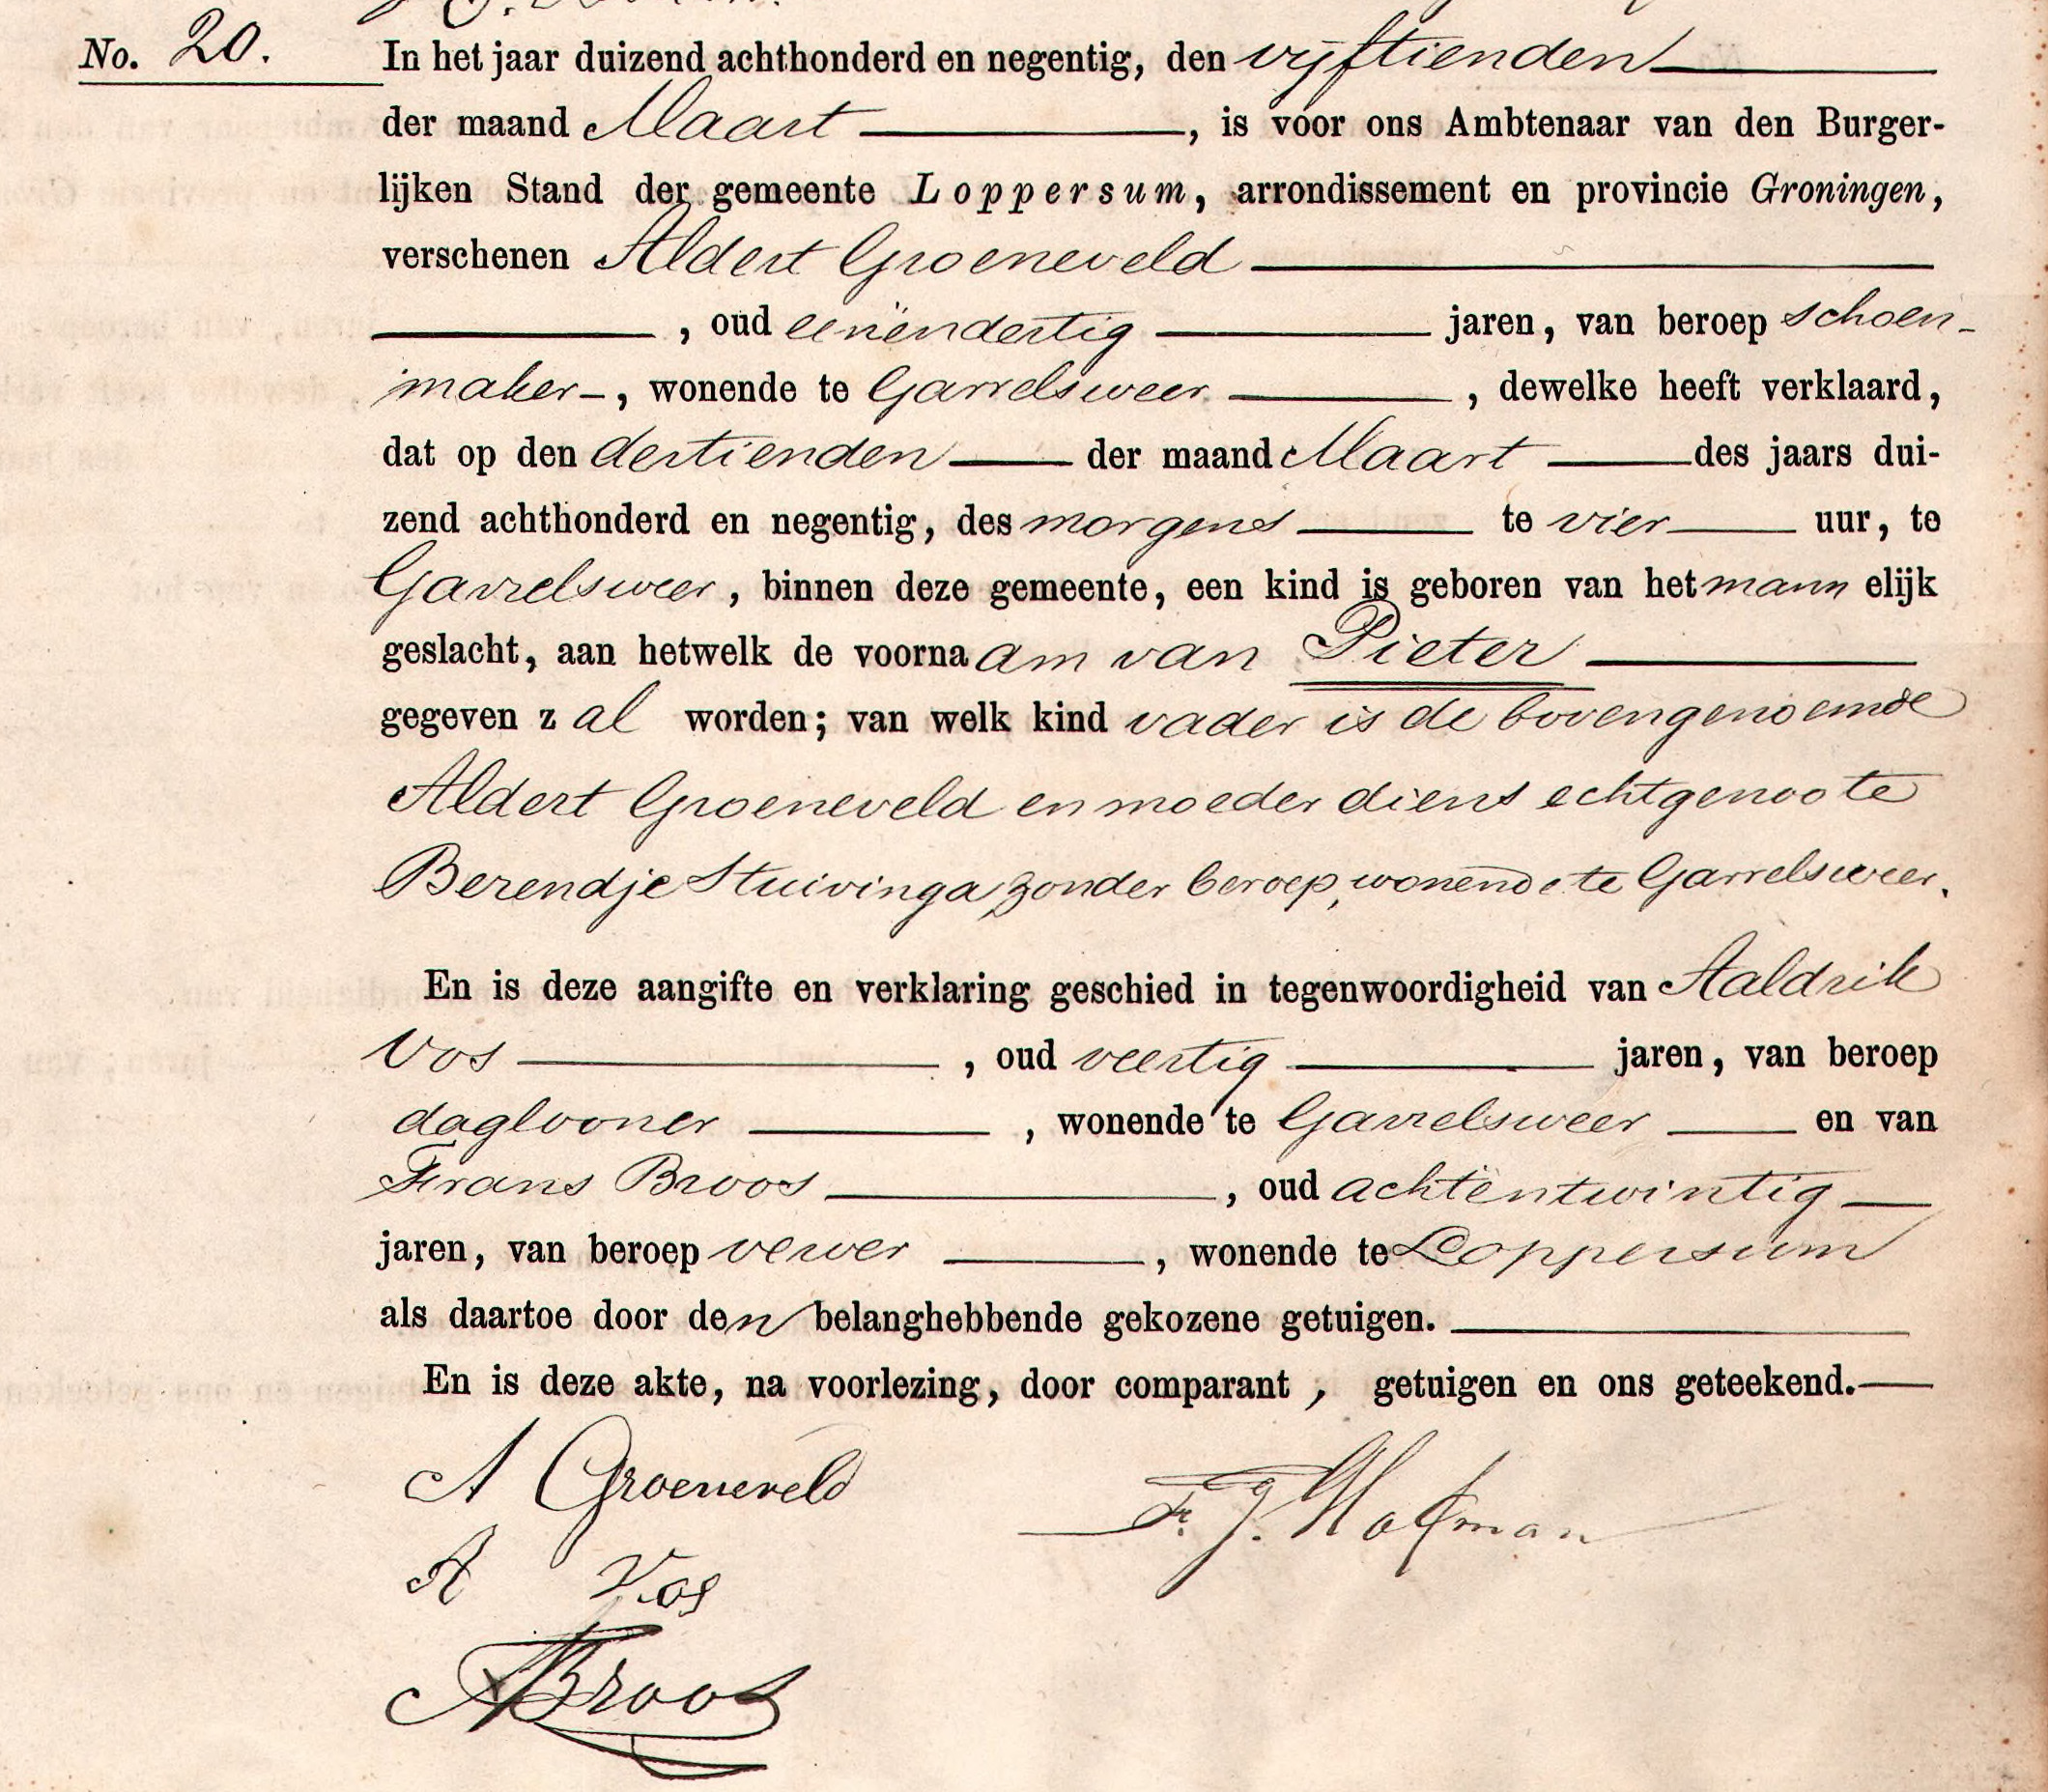 No. 20.
In het jaar duizend achthonderd en negentig, den vijftienden
der maand Maart, is voor ons Ambtenaar van den Burger-
lijken Stand der gemeente Loppersum, arrondissement en provincie Groningen,
verschenen Aldert Groeneveld
, oud eenëndertig jaren, van beroep schoen-
maker, wonende te Garrelsweer, dewelke heeft verklaard,
dat op den dertienden der maand Maart des jaars dui-
zend achthonderd en negentig, des morgens te vier uur, te
Garrelsweer, binnen deze gemeente, een kind is geboren van het mannelijk
geslacht, aan hetwelk de voornaam van Pieter
gegeven zal worden; van welk kind vader is de bovengenoemde
Aldert Groeneveld en moeder diens echtgenoote
Berendje Stuivinga, zonder beroep, wonende te Garrelsweer.
En is deze aangifte en verklaring geschied in tegenwoordigheid van Aaldrik
Vos, oud veertig jaren, van beroep
daglooner, wonende te Garrelsweer en van
Frans Broos, oud achtëntwintig
jaren, van beroep verwer, wonende te Loppersum
als daartoe door den belanghebbende gekozene getuigen.
En is deze akte, na voorlezing, door comparant, getuigen en ons geteekend.
A Groeneveld
F. J. Hofman
A Vos
F Broos